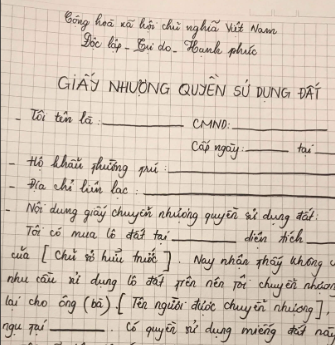 Cộng hoà xã hội chủ nghĩa Việt Nam
Độc lập - Tự do - Hạnh phúc
GIẤY NHƯỢNG QUYỀN SỬ DỤNG ĐẤT
- Tôi tên là : __________ CMND: __________
Cấp ngày: __________ tại
- Hộ khẩu thường trú : __________
- Địa chỉ liên lạc : __________
- Nội dung giấy chuyển nhượng quyền sử dụng đất:
Tôi có mua lô đất tại __________ diện tích __________
của [ Chủ sở hữu trước ] . Nay nhận thấy không
nhu cầu sử dụng lô đất trên nên tôi chuyển nhượn
lại cho ông (bà) [ Tên người được chuyển nhượng ] ,
ngụ tại __________ . Có quyền sử dụng miếng đất này